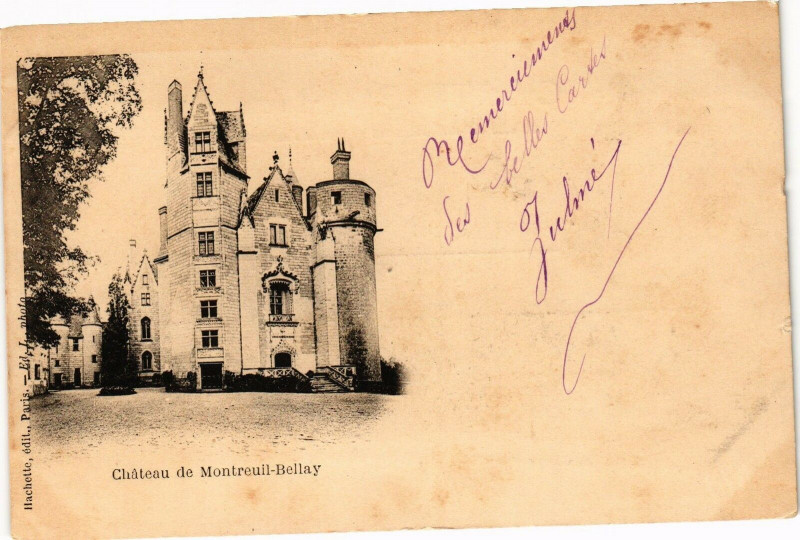 Remerciements
des belles Cartes
Zulmé
Château de Montreuil-Bellay
Hachette, édit., Paris. - Ed. L. photo